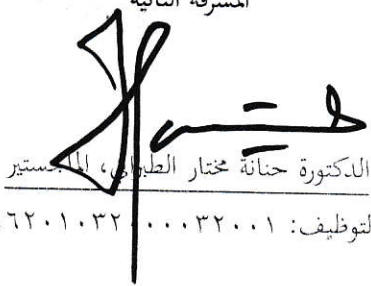 المشرفة الثانية
الدكتورة حنانة مختار الطبراني، الماجستير
لتوظيف: ٦٢٠١٠٣٢٠٠٠٣٢٠٠١